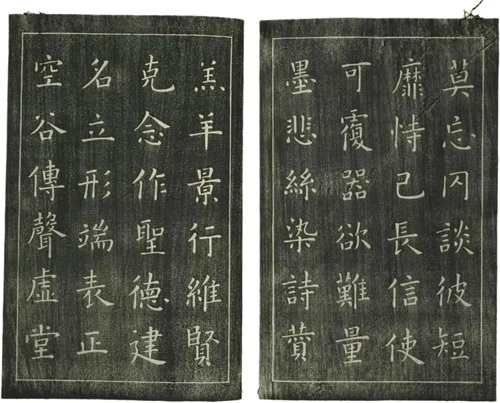 莫忘罔談彼短
靡恃己長信使
可覆器欲難量
墨悲絲染詩賛
羔羊景行維賢
克念作聖德建
名立形端表正
空谷傳聲虛堂